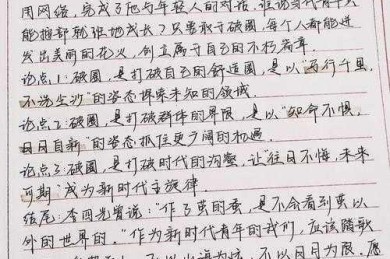 用网络，完成了他与年轻人的对话，谁说当代青年人
能独都就张地成长？只要敢于破圈，每个人都能迸
发出美丽的花火，创立属于自己的不朽篇章。
论点1：破圈，是打破自己的舒适圈，是以“万行千里，
不洗尘沙”的姿态探索未知的领域。
论点2：破圈，是打破群体的界限，是以“知命不惧，
日日自新”的姿态抓住更广阔的机遇。
论点3：破圈，是打破时代的沟壑，让“往日不悔，未来
可期”成为新时代主旋律。
结尾：李四光曾说：“作了茧的蚕，是不会看到茧以
外的世界的。”作为新时代青年的我们，应该踏歌
不以山海为远，不以日月为限，愿